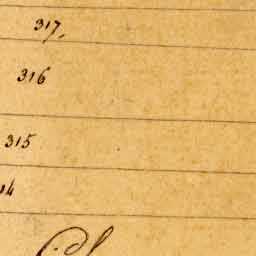 317.
316
315
14